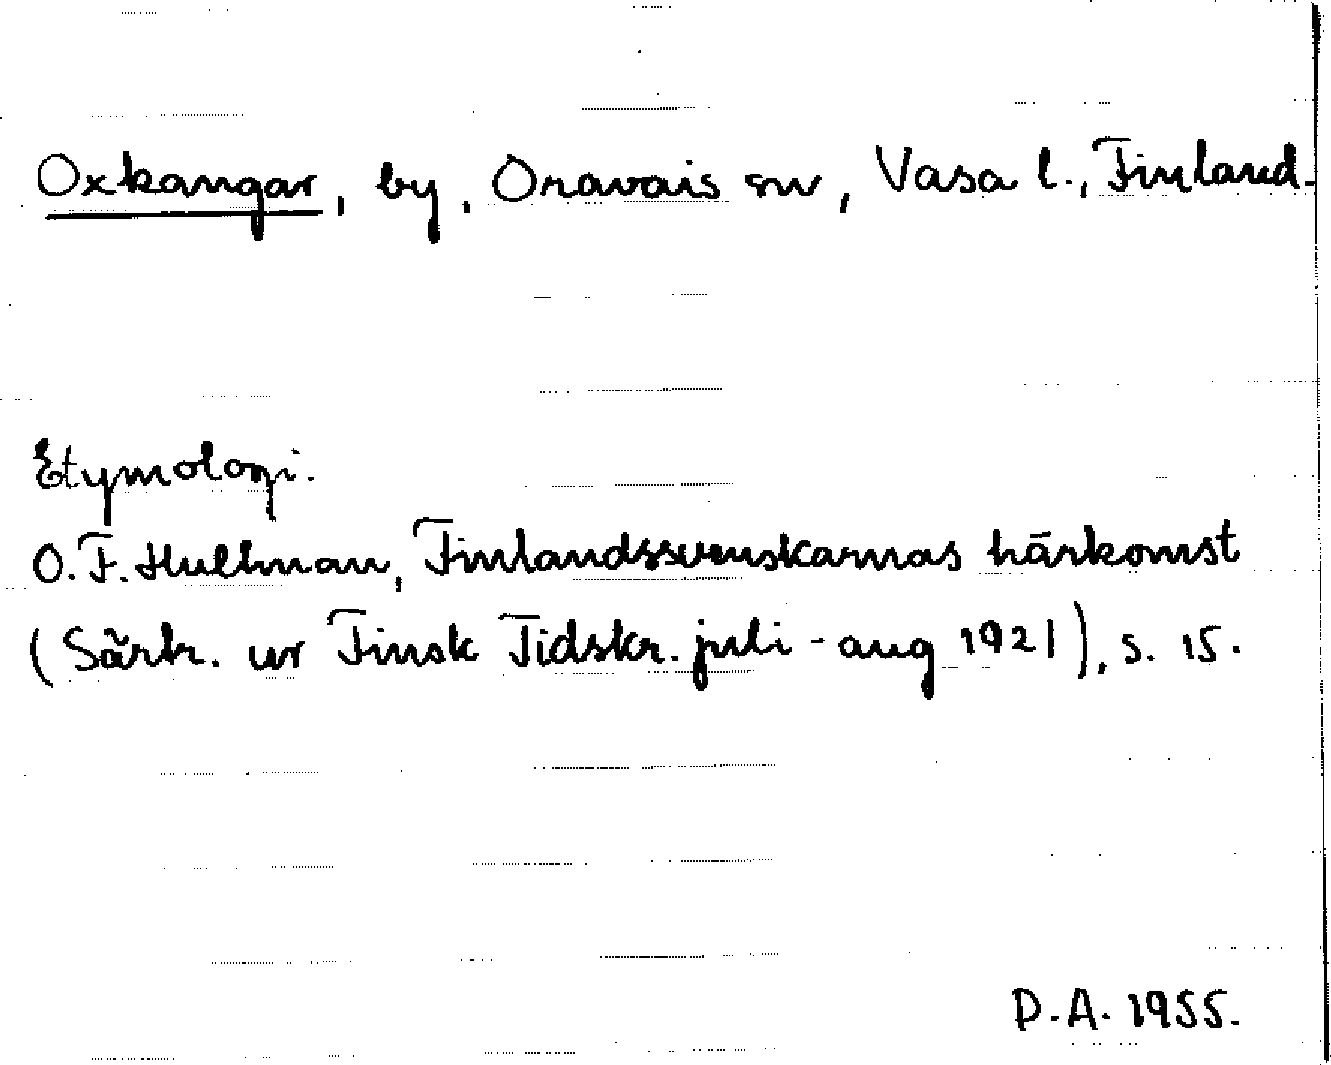 Oxkangar, by, Oravais sn, Vasa l., Finland.
Etymologi.
O. F. Hultman, Finlandssvenskarnas härkomst
(Särtr. ur Finsk Tidskr. juli - aug 1921), s. 15.
P. A. 1955.